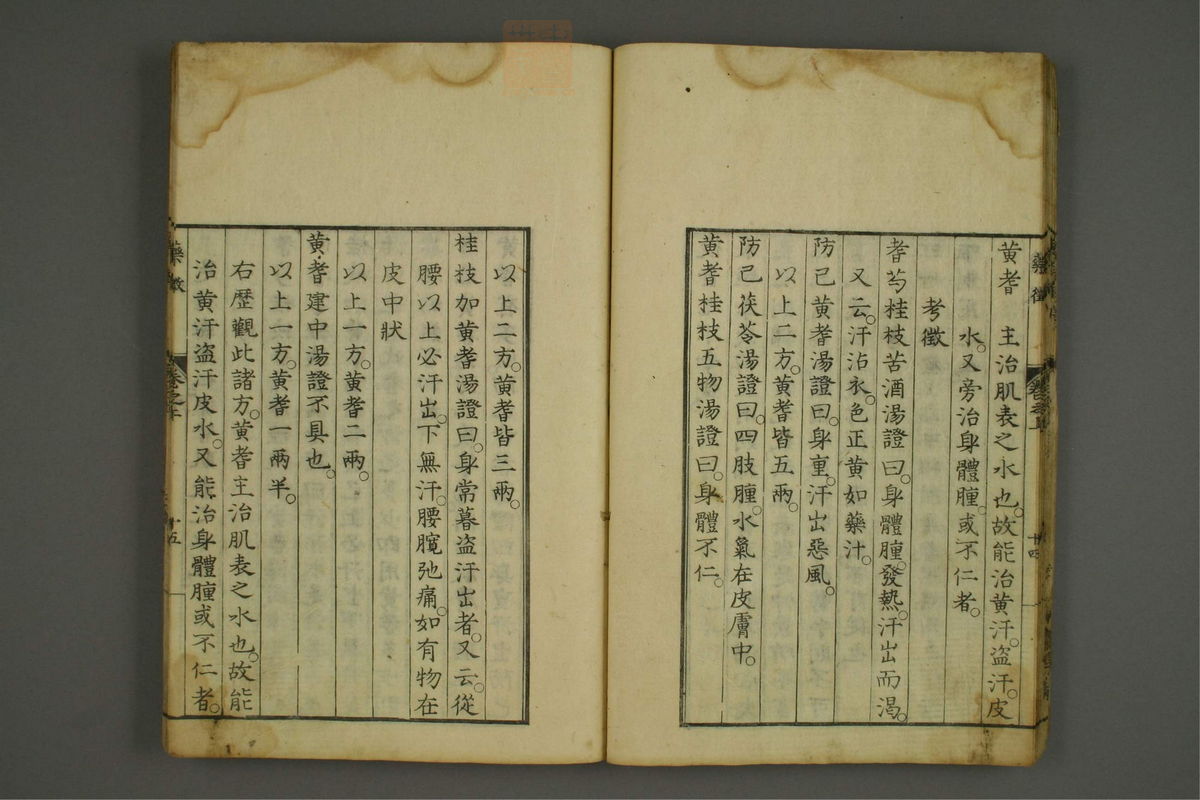 黄耆　主治肌表之水也。故能治黄汗。盗汗。皮
水。又旁治身體腫。或不仁者。
考徴
耆芍桂枝苦酒湯證曰。身體腫。發熱。汗出而渴。
又云。汗沾衣。色正黄如藥汁。
防已黄耆湯證曰。身重。汗出惡風。
以上二方。黄耆皆五兩。
防已茯苓湯證曰。四肢腫。水氣在皮膚中。
黄耆桂枝五物湯證曰。身體不仁。
以上二方。黄耆皆三兩。
桂枝加黄耆湯證曰。身常暮盗汗出者。又云。從
腰以上必汗出。下無汗。腰髖弛痛。如有物在
皮中狀
以上一方。黄耆二兩。
黄耆建中湯證不具也。
以上一方。黄耆一兩半。
右歴觀此諸方。黄耆主治肌表之水也。故能
治黄汗盗汗皮水。又能治身體腫或不仁者。
藥徴
十五